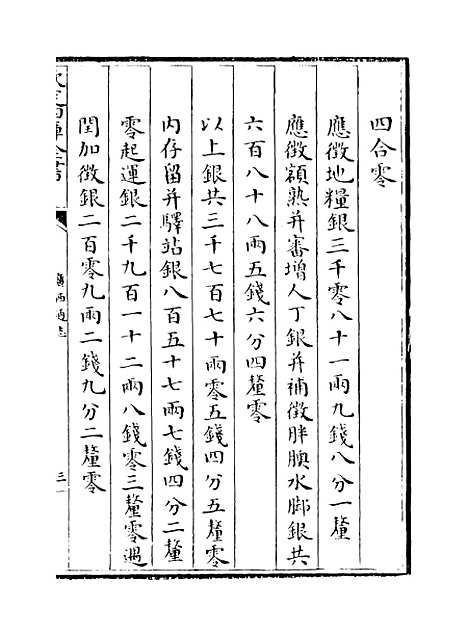 四合零
應徵地糧銀三千零八十一兩九錢八分一釐
應徵額熟并審增人丁銀并補徵胖腴水腳銀共
六百八十八兩五錢六分四釐零
以上銀共三千七百七十兩零五錢四分五釐零
內存留并驛站銀八百五十七兩七錢四分二釐
零起運銀二千九百一十二兩八錢零三釐零遇
閏加徵銀二百零九兩二錢九分二釐零
欽定四庫全書
廣西通志